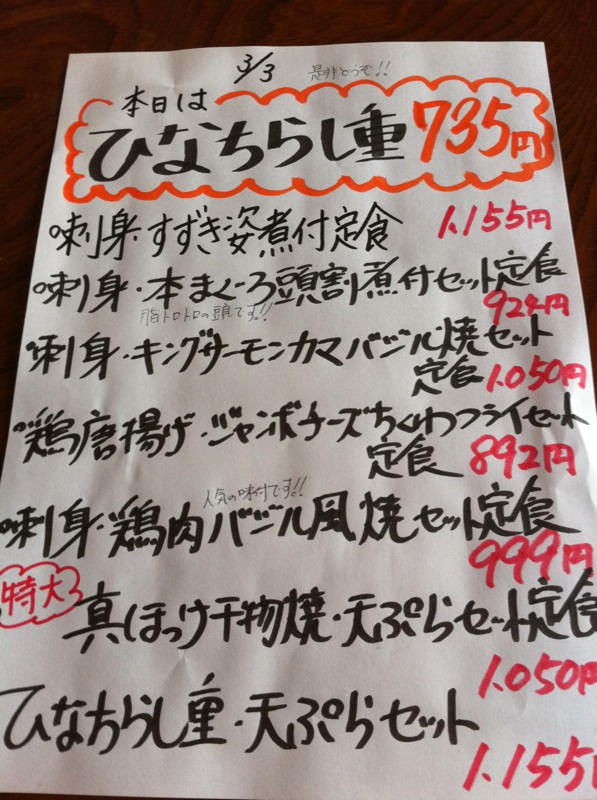 3/3
是非どうぞ!!
本日は
ひなちらし重 735円
刺身・すずき姿煮付定食 1.155円
刺身・本まぐろ頭割煮付セット定食
脂トロトロの頭です!! 924円
刺身・キングサーモンカマバジル焼セット
定食 1.050円
鶏唐揚げ・ジャンボチーズちくわフライセット
定食 892円
人気の味付です!!
刺身・鶏肉バジル風焼セット定食
999円
特大 真ほっけ干物焼・天ぷらセット定食
1.050円
ひなちらし重・天ぷらセット
1.155円